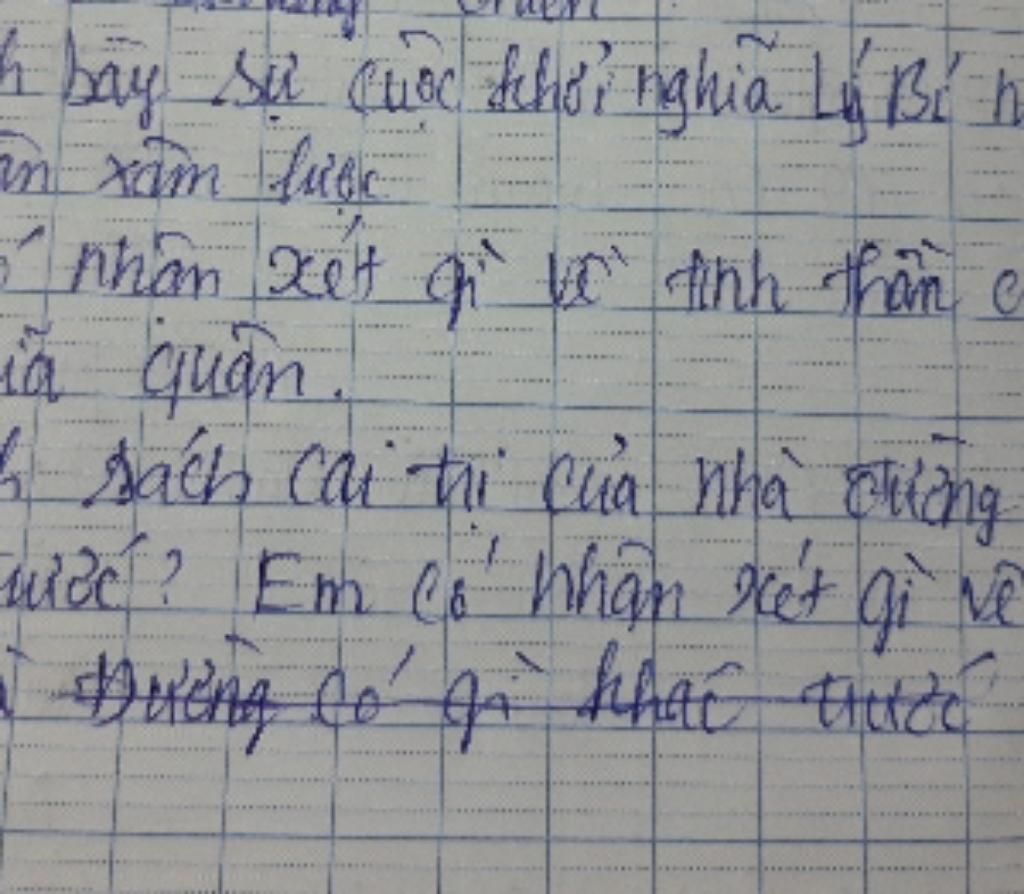 bày sự cuộc khởi nghĩa Lý Bí
xâm lược
nhận xét gì về tinh thần
quân.
sách cai trị của nhà đường
? Em có nhận xét gì về
Đường có gì khác trước